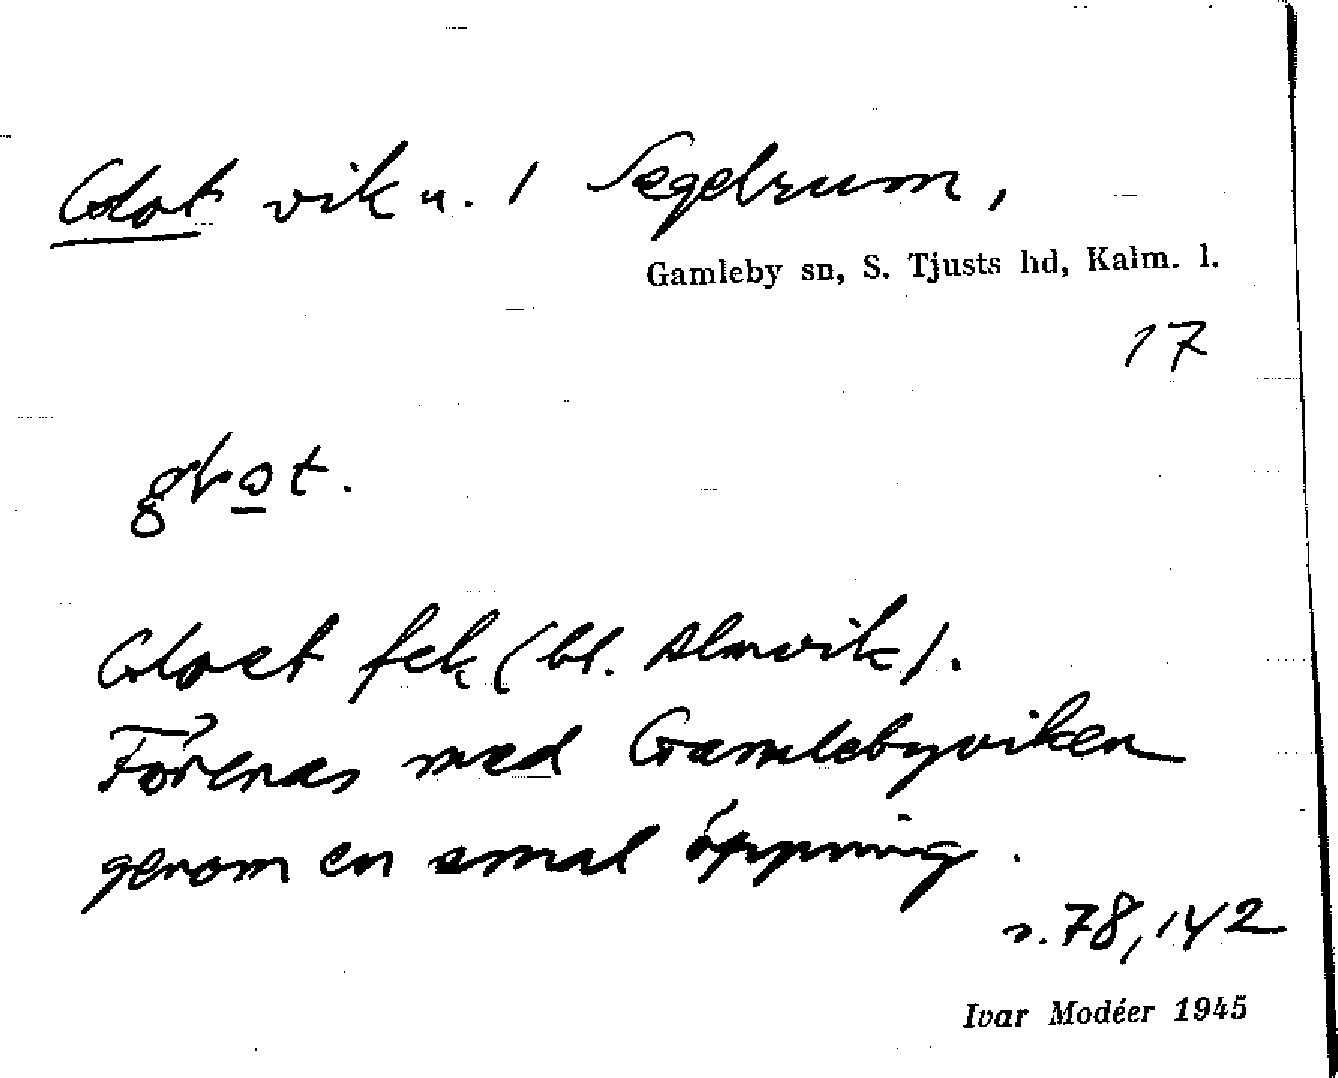 Glot vik n. 1 Segelrum,
Gamleby sn, S. Tjusts hd, Kalm. l.
17
glɔt.
Gloet fek (bl. Almvik).
Förenas med Gamlebyviken
genom en smal öppning.
s. 78, 142
Ivar Modéer 1945